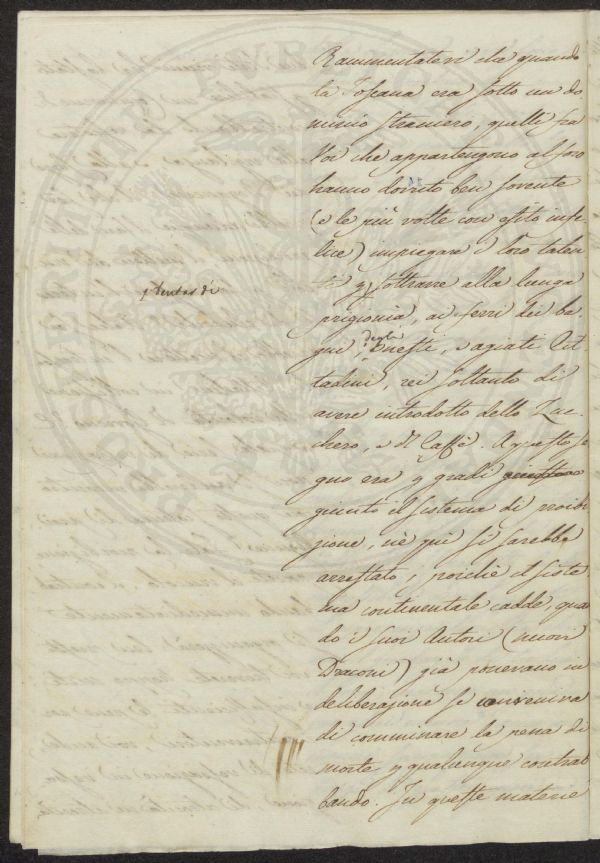 Rammentatevi che quando
la Toscana era sotto un do
minio straniero, quelli fra
Voi che appartengono al foro
hanno dovuto ben sovente
(e le più volte con esito infe
lice) impiegare i loro talen
ti p sottrarre alla lunga
tentar di
prigionia, ai ferri dei ba
gni, degli onesti, e agiati Cit
tadini, rei soltanto di
avere introdotto dello Zuc
chero, e dl Caffè. A questo se
gno era p gradi
giunto il sistema di proibi
zione, nè quì si sarebbe
arrestato; poichè il siste
ma continentale cadde, quan
do i suoi Autori (nuovi
Draconi) già ponevano in
deliberazione se conveniva
di comminare la pena di
morte p qualunque contrab
bando. In queste materie